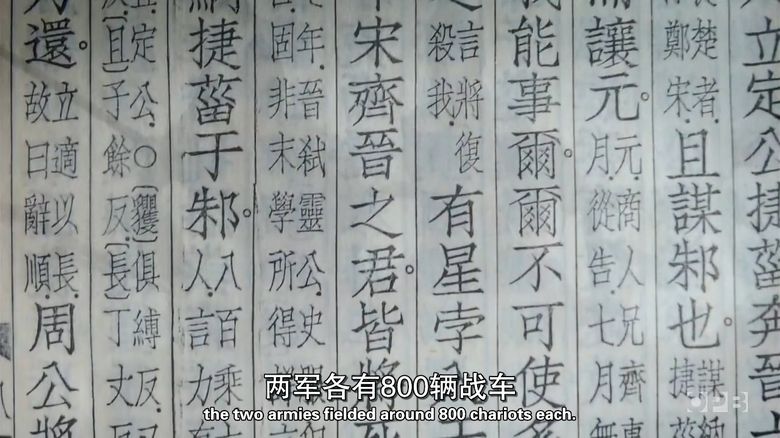 立定公捷菑奔晉
楚者
鄭宋
且謀邾也。謀
捷
讓元。元商人兄齊
月從告七月無
能事爾爾不可使
言將復
殺我
有星孛
宋齊晉之君。皆將死
年晉弒靈公史
固非末學所得
捷菑于邾。八百乘
人言力
定公〇玃俱縛反
且子餘反長丁丈
還。立適以長
故曰辭順
周公將
两军各有800辆战车
the two armies fielded around 800 chariots each.
OPB